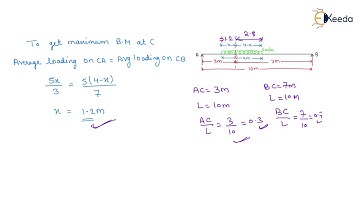 To get maximum B.M at C
Average loading on CA = Avg loading on CB
5x/3 = 5(4-x)/7
x = 1.2m
Ekeeda
1.2 2.8
A B
3m 7m
10m
AC = 3m BC = 7m
L = 10m L = 10m
AC/L = 3/10 = 0.3 BC/L = 7/10